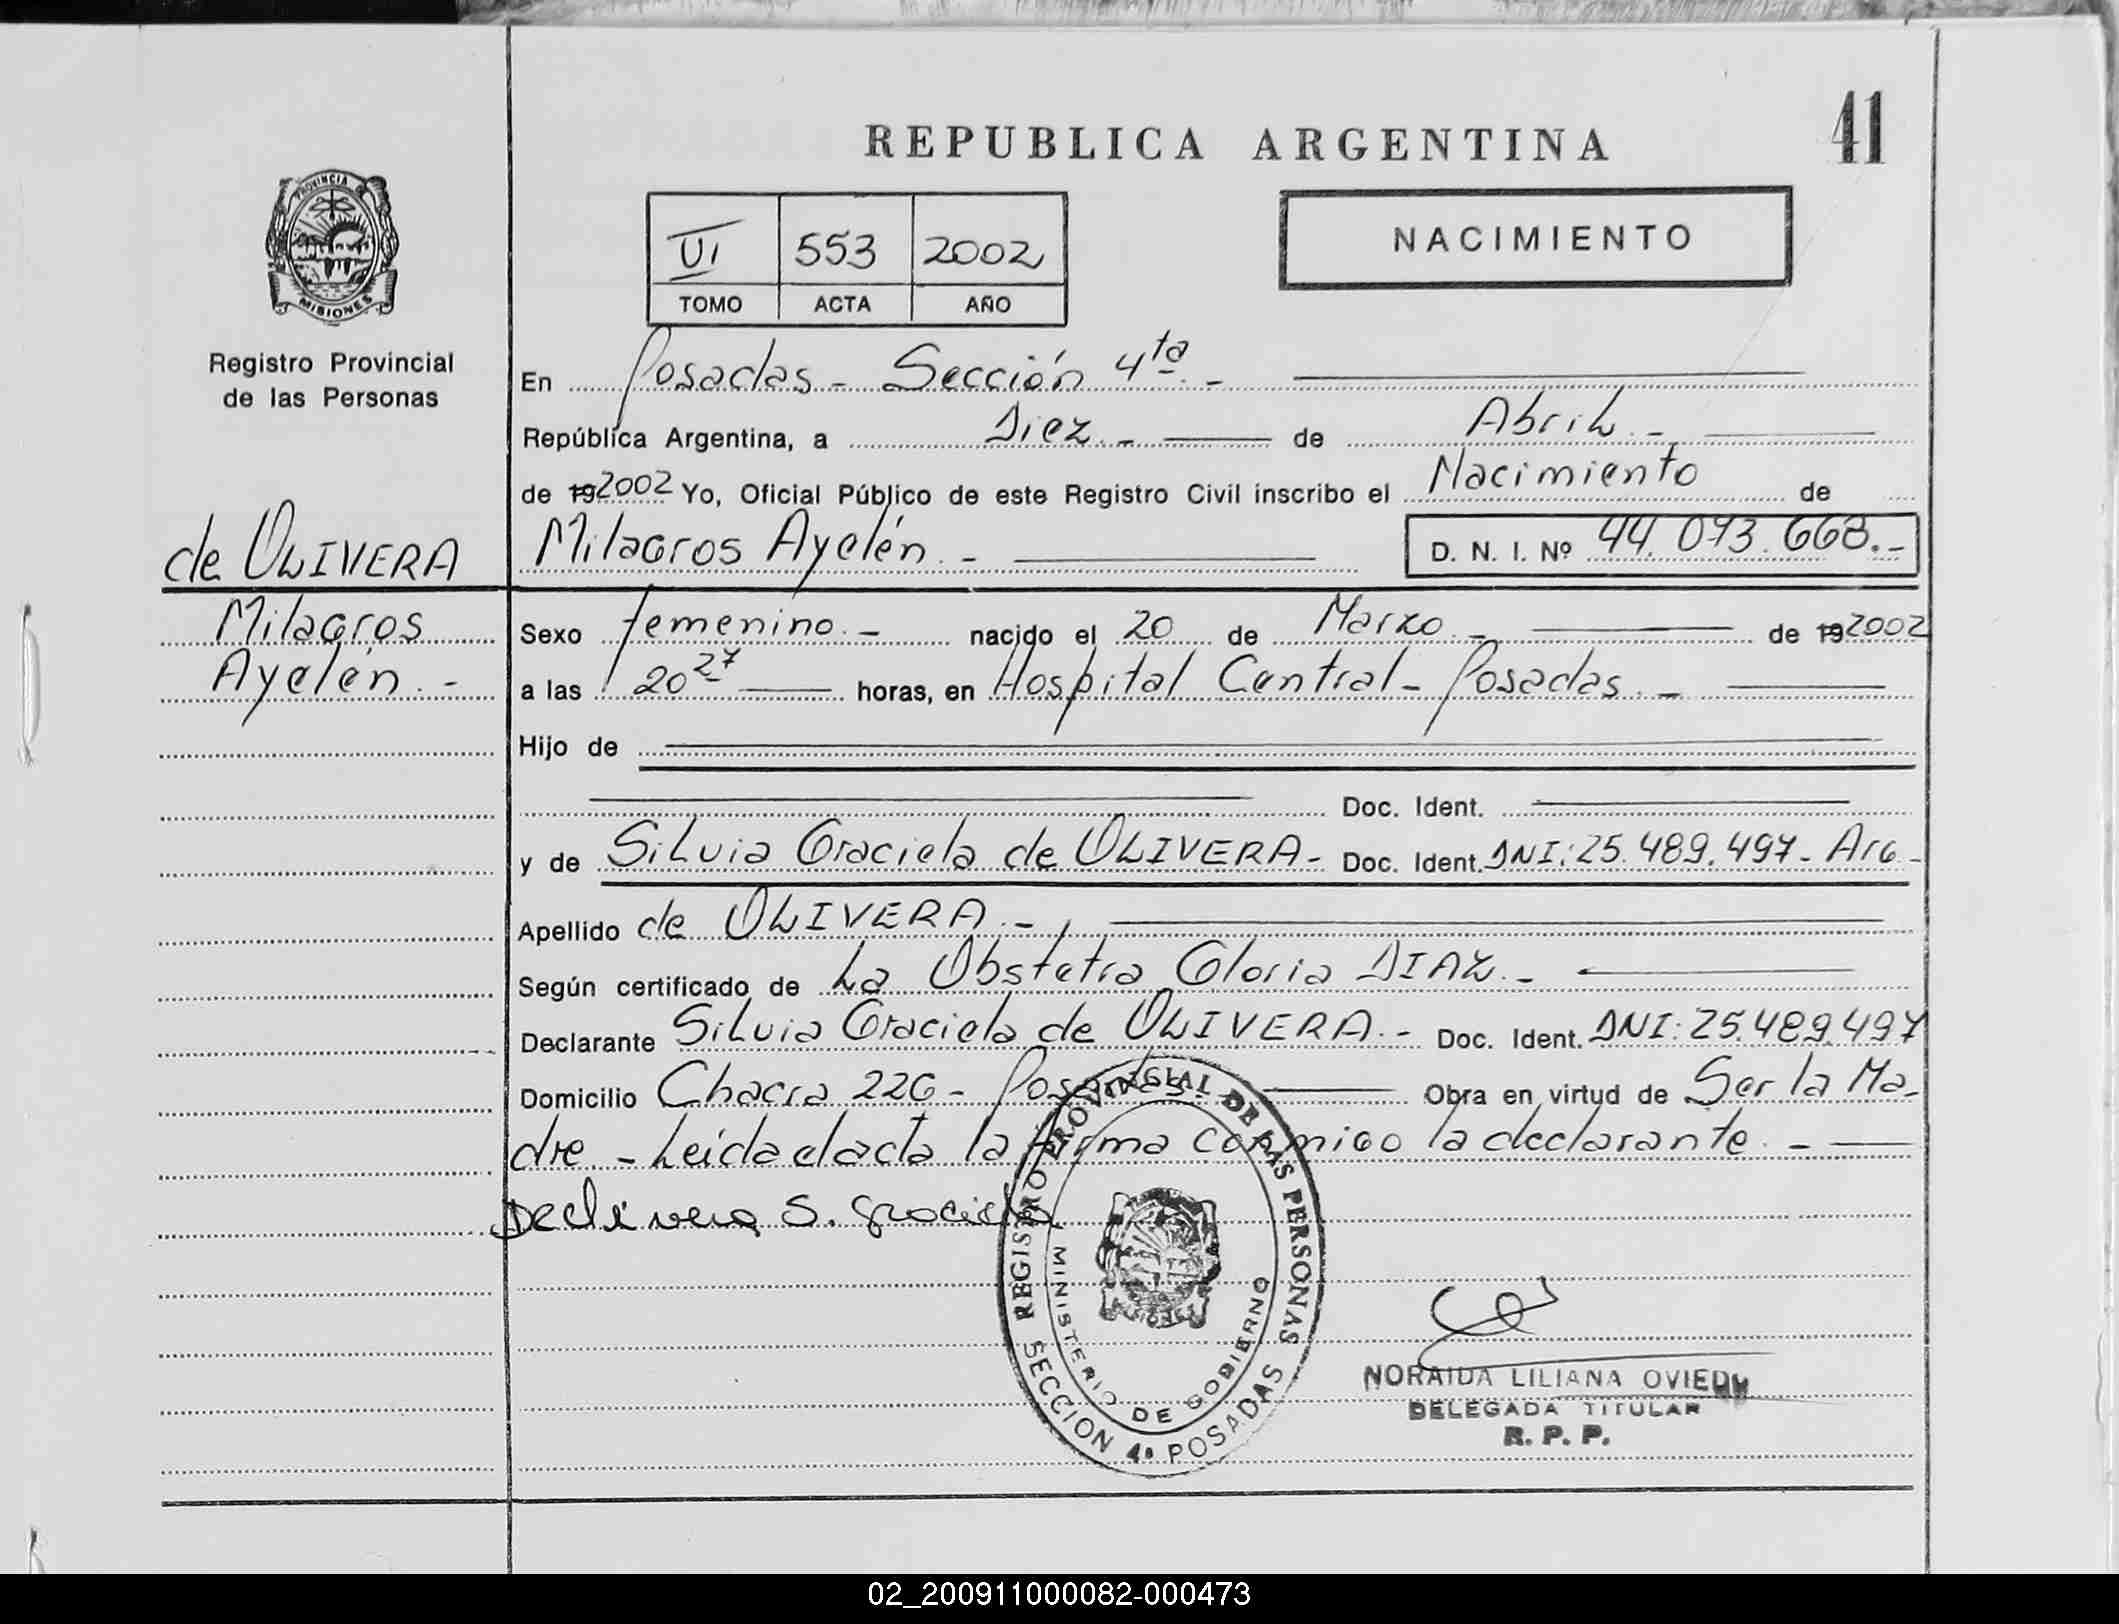 REPUBLICA ARGENTINA
41
PROVINCIA DE
MISIONES
Registro Provincial
de las Personas
VI 553 2002
TOMO ACTA AÑO
NACIMIENTO
En Posadas - Sección 4ta. -
República Argentina, a Diez. - de Abril. -
de 192002 Yo, Oficial Público de este Registro Civil inscribo el Nacimiento de
de OLIVERA
Milagros Ayelén. -
D. N. I. Nº 44.073.668.-
Milagros
Ayelén. -
Sexo femenino. - nacido el 20 de Marzo. - de 192002
a las 20 27 horas, en Hospital Central - Posadas. -
Hijo de
Doc. Ident.
y de Silvia Graciela de OLIVERA - Doc. Ident. DNI: 25.489.497 - Arg -
Apellido de OLIVERA. -
Según certificado de La Obstetra Gloria DIAZ. -
Declarante Silvia Graciela de OLIVERA. - Doc. Ident. DNI: 25.489.497
Domicilio Chacra 226 - Posadas. Obra en virtud de Ser la Ma-
dre - Leída el acta la firma conmigo la declarante. -
De Olivera S. Graciela
REGISTRO PROVINCIAL DE LAS PERSONAS
MINISTERIO DE GOBIERNO
SECCION 4ª POSADAS
NORAIDA LILIANA OVIEDO
DELEGADA TITULAR
R. P. P.
02_200911000082-000473